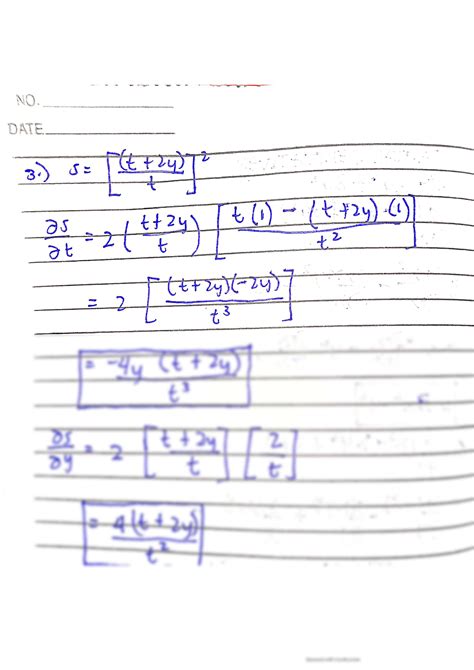 NO.
DATE
3.) s = [(t + 2y)/t]^2
∂s/∂t = 2 ((t+2y)/t) [(t(1) - (t+2y).(1))/t^2]
= 2 [((t+2y)(-2y))/t^3]
= -4y (t+2y)/t^3
∂s/∂y = 2 [(t+2y)/t] [2/t]
= 4(t+2y)/t^2